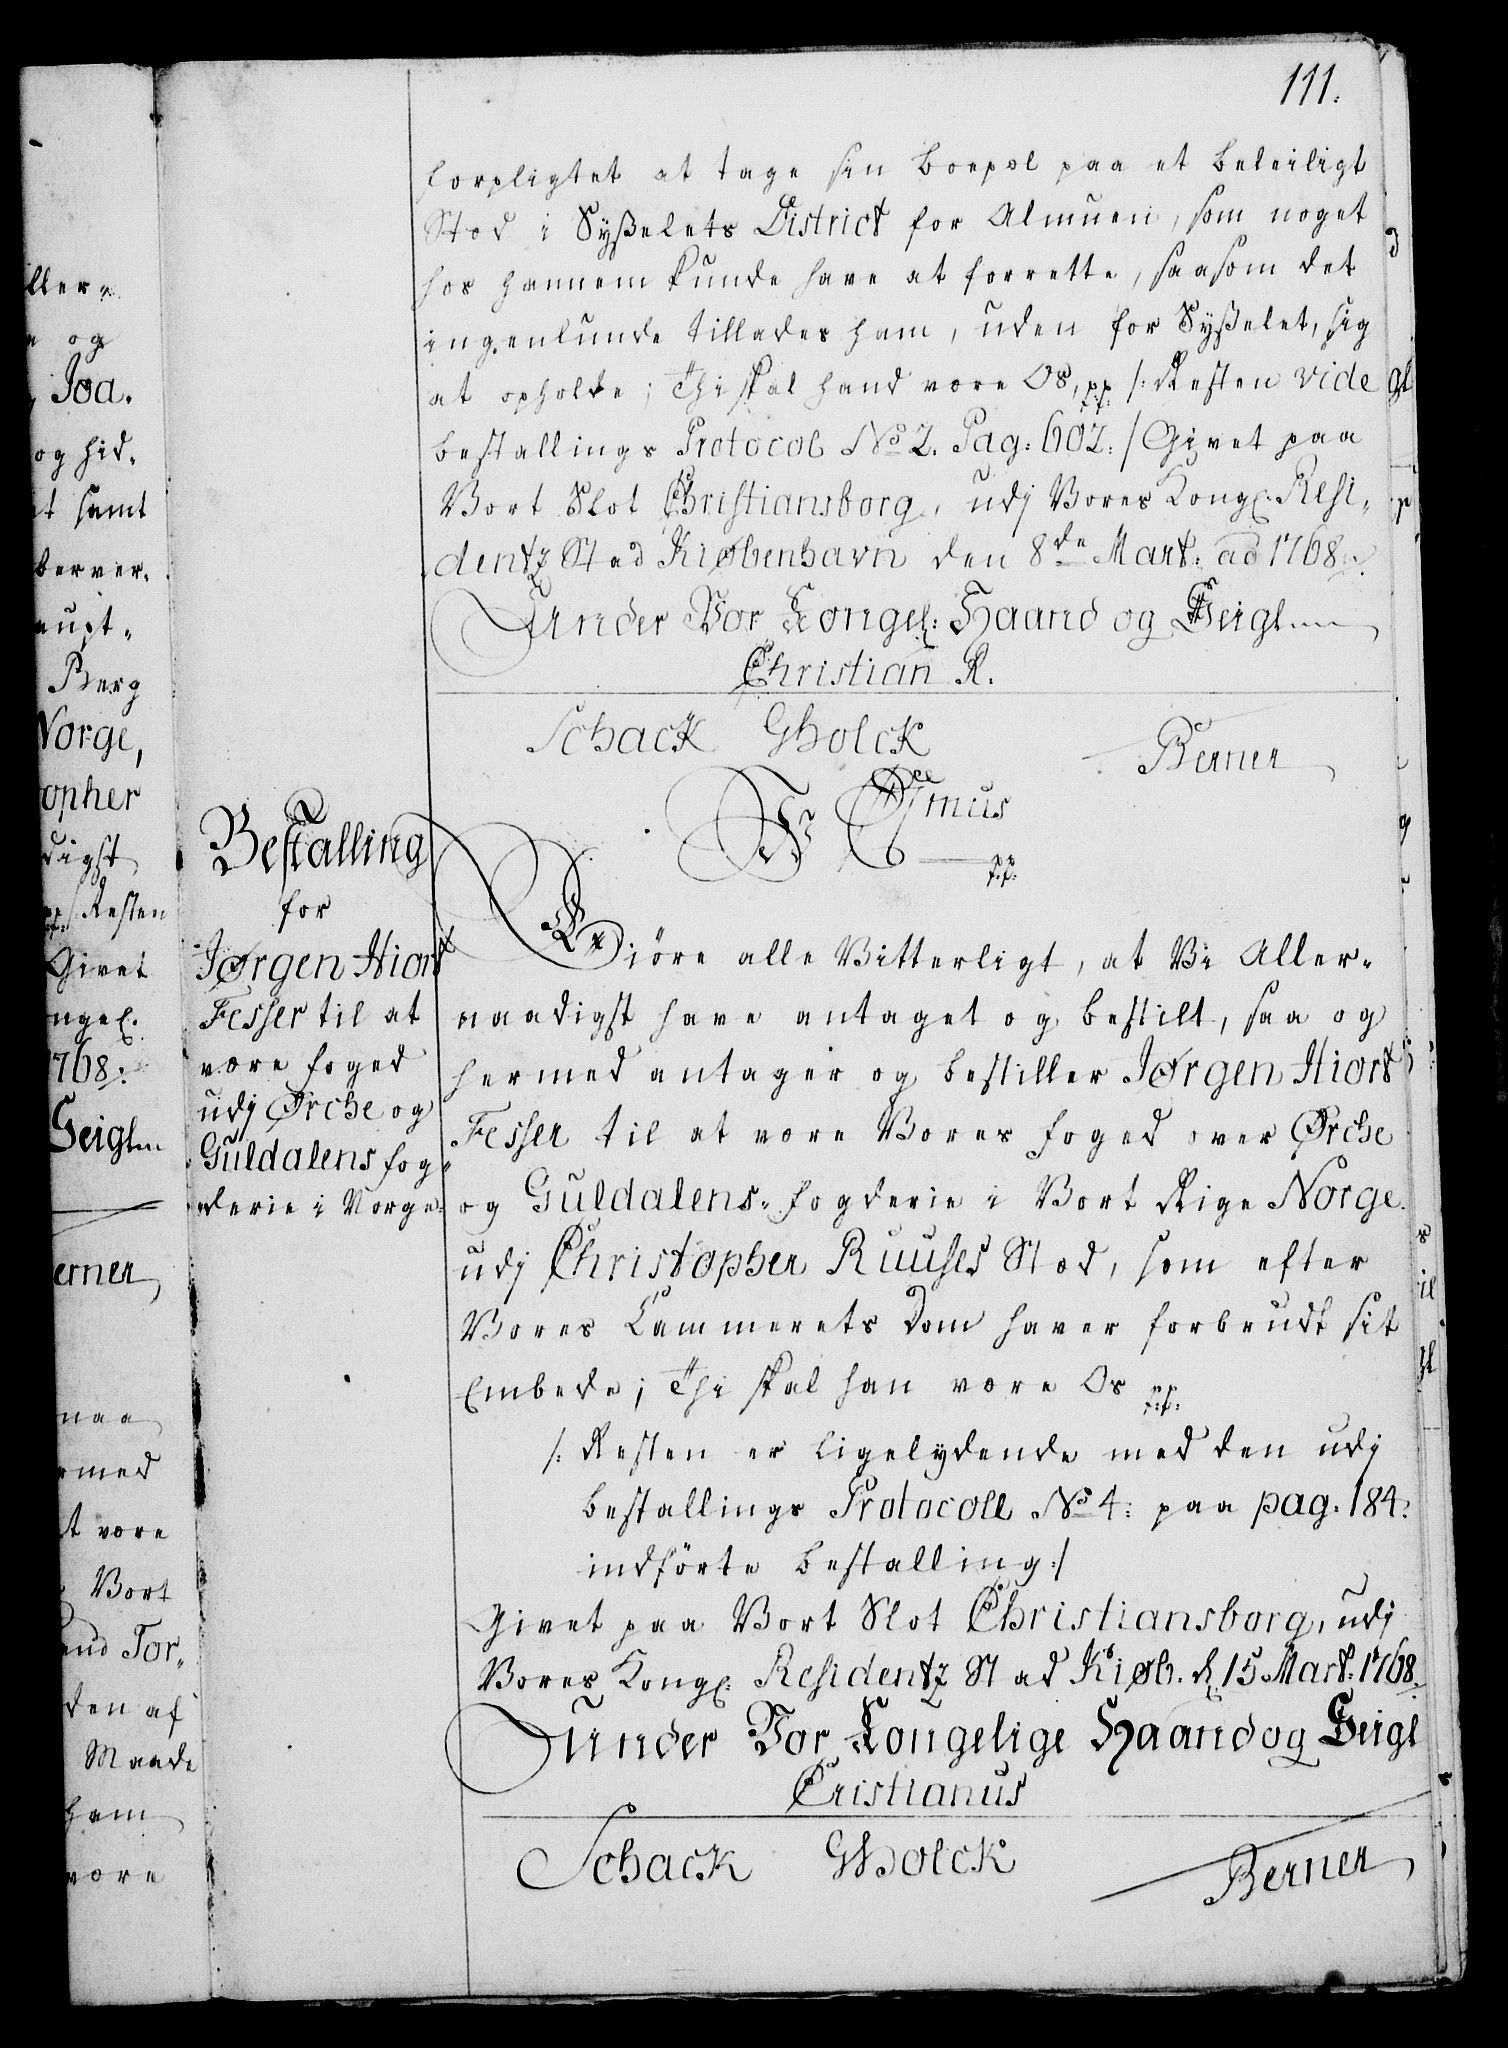 111.
forpligtet at tage sin boepæl paa et beleiligt
Stæd i Syßelets District for Almuen, som noget
hos hannem kunde have at forrette, saasom det
ingenlunde tillades ham, uden for Syßelet, sig
at opholde; Thi skal hand være Os, pp. /: Resten vide
bestallings Protocol No 2. Pag: 602: / Givet paa
Vort Slot Christiansborg, udj Vores Kongl: Resi-
dentz Stad Kiøbenhavn den 8de Mart: ao 1768.
Under Vor Kongel: Haand og Seigl
Christian R.
Schack Gholck
Berner
Bestalling
for
Jørgen Hiort
Fesser til at
være foged
udj Ørche og
Guldalens fog-
derie i Norge.
W C 7mus
pp.
Giöre alle Vitterligt, at Vi Aller-
naadigst have antaget og bestilt, saa og
hermed antager og bestiller Jørgen Hiort
Fesser til at være Vores foged over Ørche
og Guldalens- fogderie i Vort Rige Norge
udj Christopher Ruuses Stæd, som efter
Vores Cammerets Dom haver forbrudt sit
Embede; Thi skal han være Os pp.
/: Resten er ligelydende med den udj
bestallings Protocoll No 4: paa pag. 184.
indförte bestalling :/
Givet paa Vort Slot Christiansborg, udj
Vores Kongl: Residentz Stad Kiøb. d. 15 Mart: 1768.
Under Vor Kongelige Haand og Seigl
Cristianus
Schack Gholck
Berner